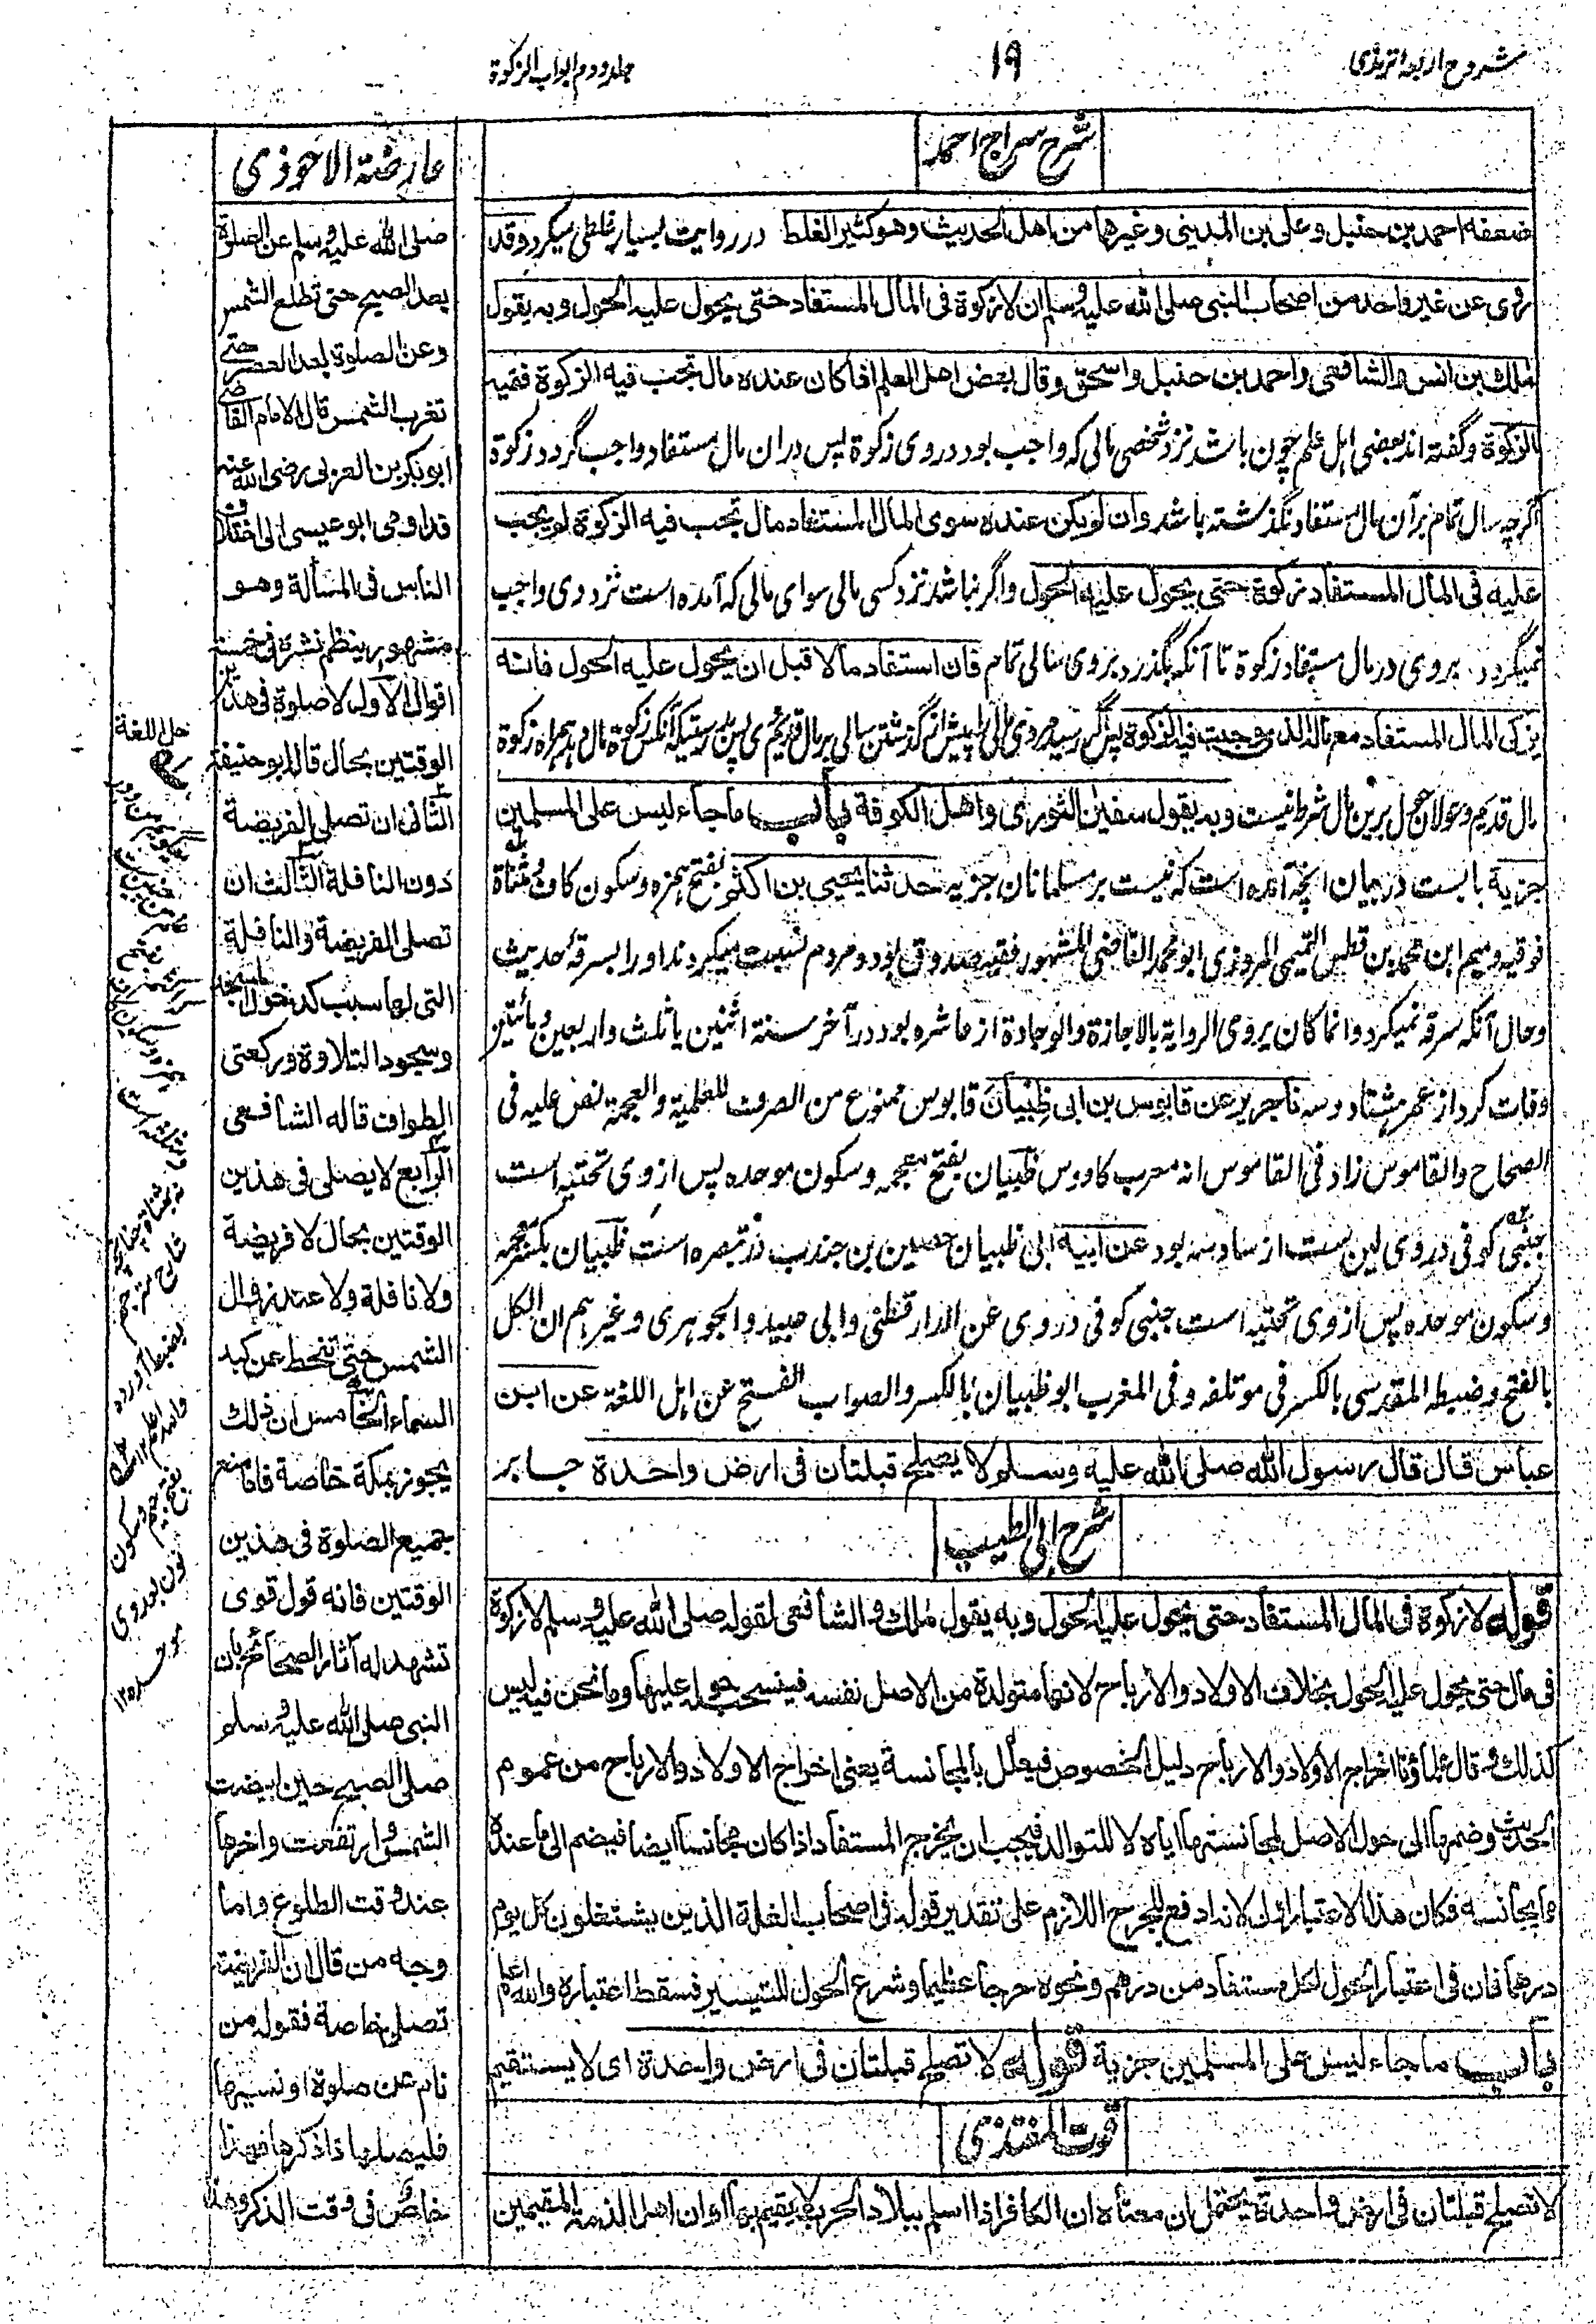 شروح اربعہ ترمذی
۱۹
جلد دوم ابواب الزکوة
شرح سراج احمد
ضعفه احمد بن حنبل وعلی بن المدینی وغیرهما من اهل الحدیث وهو کثیر الغلط در روایت بسیار غلطی میکرد وقد
روی عن غیر واحد من اصحاب النبی صلی الله علیه وسلم ان لا زکوة فی المال المستفاد حتی یحول علیه الحول وبه یقول
مٰلك بن انس والشافعی واحمد بن حنبل واسحٰق وقال بعض اهل العلم اذا کان عنده مال تجب فیه الزکوة ففیه
الزکوة وگفته اند بعضی اہل علم چون باشد نزد شخصی مالی که واجب بود در وی زکوة پس در ان مال مستفاد واجب گردد زکوة
اگرچه سال تمام بر آن مال مستفاد نگذشته باشد وان لم یکن عنده سوی المال المستفاد مال تجب فیه الزکوة لم یجب
علیه فی المال المستفاد زکوة حتی یحول علیه الحول واگر نباشد نزد کسی مالی سوای مالی که آمده است نزد وی واجب
نمیگردد بر وی در مال مستفاد زکوة تا آنکه بگذرد بر وی سالی تمام فان استفاد مالا قبل ان یحول علیه الحول فانه
یزکی المال المستفاد مع ماله الذی وجبت فیه الزکوة پس اگر رسید مردی را مالی پیش از گذشتن سالی بر مال قدیم وی پس بدرستیکه آنکس زکوة مال دہد ہمراه زکوة
مال قدیم وحولان حول برین مال شرط نیست وبه یقول سفین الثوری واهل الکوفة باب ما جاء لیس علی المسلمین
جزیة بابست در بیان آنچه آمده است که نیست بر مسلمانان جزیه حدثنا یحیی بن اکثم بفتح ہمزه وسکون کاف ومثناة
فوقیه ومیم ابن محمد بن قطن التمیمی المروزی ابو محمد القاضی المشهور فقیه صدوق بود ومردم نسبت میکردند او را بسرقهٔ حدیث
وحال آنکه سرقه نمیکرد وانما کان یروی الروایة بالاجازة والوجادة از عاشره بود در آخر سنة اثنین یا ثلث واربعین ومأتین
وفات کرد از عمر ہشتاد وسه نا جریر عن قابوس بن ابی ظبیان قابوس ممنوع من الصرف للعلمیة والعجمة نص علیه فی
الصحاح والقاموس زاد فی القاموس انه معرب کاووس ظبیان بفتح معجمه وسکون موحده پس از وی تحتیه است
جنبی کوفی در وی لین ست از سادسه بود عن ابیه ابی ظبیان حصین بن جندب در تبصره است ظبیان بکسر معجمه
وسکون موحده پس از وی تحتیه است جنبی کوفی در وی عن الدارقطنی وابی عبید والجوہری وغیرہم ان الکل
بالفتح وضبطه المقدسی بالکسر فی موتلفه وفی المغرب ابو ظبیان بالکسر والصواب الفتح عن اہل اللغة عن ابن
عباس قال قال رسول الله صلی الله علیه وسلم لا یصلح قبلتان فی ارض واحدة جایز
شرح ابی الطیب
قوله لا زکوة فی المال المستفاد حتی یحول علیه الحول وبه یقول مٰلك والشافعی لقوله صلی الله علیه وسلم لا زکوة
فی مال حتی یحول علیه الحول بخلاف الاولاد والارباح لانها متولدة من الاصل نفسه فینسحب حوله علیها وما نحن فیه لیس
کذلك وقال علماؤنا اخراج الاولاد والارباح دلیل الخصوص فیعلل بالمجانسة یعنی اخراج الاولاد والارباح من عموم
الحدیث وضمها الی حول الاصل لمجانستها ایاه لا للتوالد فیجب ان یخرج المستفاد اذا کان مجانسا ایضا فیضم الی ما عنده
مما یجانسه فکان هذا الاعتبار اولی لانه ادفع للحرج اللازم علی تقدیر قوله فی اصحاب الغلة الذین یشتغلون کل یوم
درهما فان فی اعتبار الحول لکل مستفاد من درهم ونحوه حرجا عظیما وشرع الحول للتیسیر فسقط اعتباره والله اعلم
باب ما جاء لیس علی المسلمین جزیة قوله لا تصلح قبلتان فی ارض واحدة ای لا یستقیم
قوت المغتذی
لا تصلح قبلتان فی ارض واحدة یحتمل ان معناه ان الکافر اذا اسلم ببلاد الحرب لا یقیم بها او ان اهل الذمة المقیمین
عارضة الاحوذی
صلی الله علیه وسلم عن الصلوة
بعد الصبح حتی تطلع الشمس
وعن الصلوة بعد العصر حتی
تغرب الشمس قال الامام القاضی
ابو بکر بن العربی رضی الله عنه
قد اومی ابو عیسی الی اختلاف
الناس فی المسألة وهو
مشهور ینظم نشره فی خمسة
اقوال الاول لا صلوة فی هذین
الوقتین بحال قاله ابو حنیفة
الثانی ان تصلی الفریضة
دون النافلة الثالث ان
تصلی الفریضة والنافلة
التی لها سبب کدخول المسجد
وسجود التلاوة ورکعتی
الطواف قاله الشافعی
الرابع لا یصلی فی هذین
الوقتین بحال لا فریضة
ولا نافلة ولا عند زوال
الشمس حتی تنحط عن کبد
السماء الخامس ان ذلك
یجوز بمکة خاصة فاما منع
جمیع الصلوة فی هذین
الوقتین فانه قول قوی
تشهد له آثار الصحاح بان
النبی صلی الله علیه وسلم
صلی الصبح حین ابیضت
الشمس وارتفعت واخرها
عند وقت الطلوع واما
وجه من قال ان الفریضة
تصلی خاصة فقوله من
نام عن صلوة او نسیها
فلیصلها اذا ذکرها فهذا
خاص فی وقت الذکر وهذا
حل اللغة